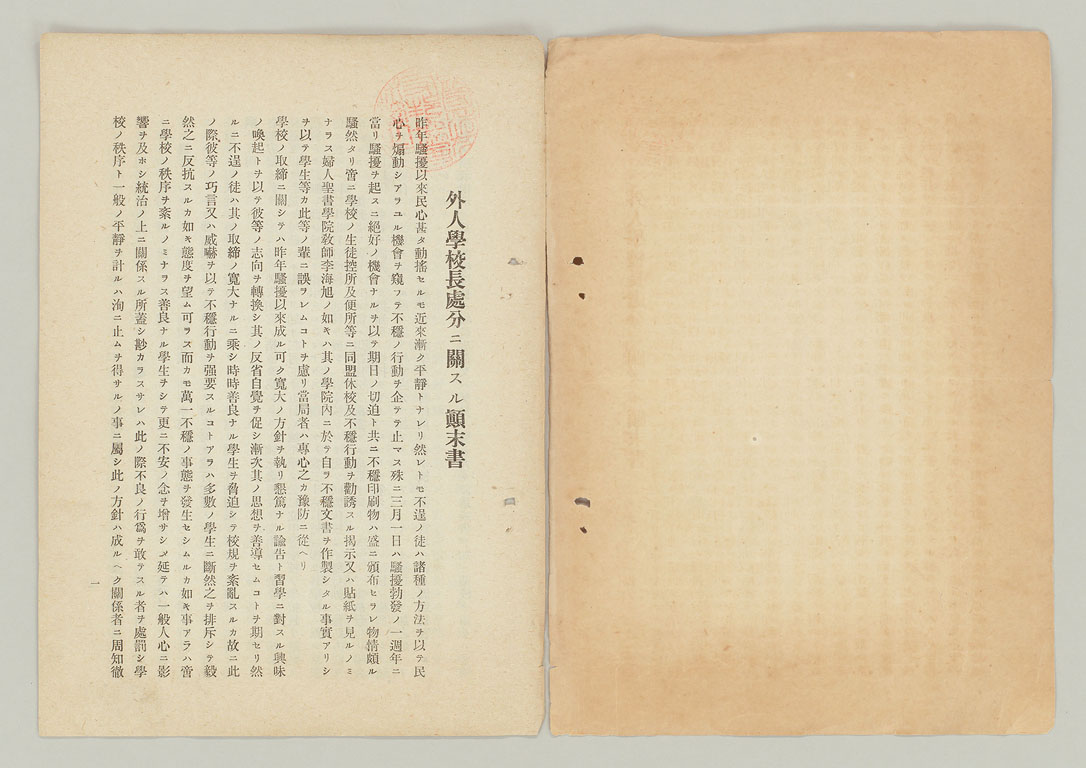 外人學校長處分ニ關スル顚末書
昨年騷擾以來民心甚タ動搖セルモ近來漸ク平靜トナレリ然レトモ不逞ノ徒ハ諸種ノ方法ヲ以テ民
心ヲ煽動シアラユル機會ヲ窺フテ不穩ノ行動ヲ企テテ止マス殊ニ三月一日ハ騷擾勃發ノ一週年ニ
當リ騷擾ヲ起スニ絕好ノ機會ナルヲ以テ期日ノ切迫ト共ニ不穩印刷物ハ盛ニ頒布セラレ物情頗ル
騷然タリ啻ニ學校ノ生徒控所及便所等ニ同盟休校及不穩行動ヲ勸誘スル揭示又ハ貼紙ヲ見ルノミ
ナラス婦人聖書學院敎師李海旭ノ如キハ其ノ學院內ニ於テ自ラ不穩文書ヲ作製シタル事實アリシ
ヲ以テ學生等カ此等ノ輩ニ誤ラレムコトヲ慮リ當局者ハ專心之カ豫防ニ從ヘリ
學校ノ取締ニ關シテハ昨年騷擾以來成ル可ク寬大ノ方針ヲ執リ懇篤ナル諭告ト習學ニ對スル興味
ノ喚起トヲ以テ彼等ノ志向ヲ轉換シ其ノ反省自覺ヲ促シ漸次其ノ思想ヲ善導セムコトヲ期セリ然
ルニ不逞ノ徒ハ其ノ取締ノ寬大ナルニ乘シ時時善良ナル學生ヲ脅迫シテ校規ヲ紊亂スルカ故ニ此
ノ際彼等ノ巧言又ハ威嚇ヲ以テ不穩行動ヲ强要スルコトアラハ多數ノ學生ニ斷然之ヲ排斥シテ毅
然之ニ反抗スルカ如キ態度ヲ望ム可ラス而カモ萬一不穩ノ事態ヲ發生セシムルカ如キ事アラハ啻
ニ學校ノ秩序ヲ紊ルノミナラス善良ナル學生ヲシテ更ニ不安ノ念ヲ增サシメ延テハ一般人心ニ影
響ヲ及ホシ統治ノ上ニ關係スル所蓋シ尠カラスサレハ此ノ際不良ノ行爲ヲ敢テスル者ヲ處罰シ學
校ノ秩序ト一般ノ平靜ヲ計ルハ洵ニ止ムヲ得サルノ事ニ屬シ此ノ方針ハ成ルヘク關係者ニ周知徹
一